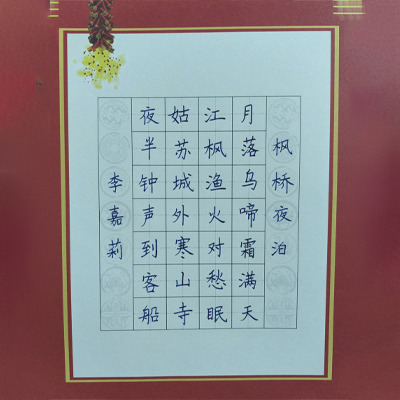 枫桥夜泊
月落乌啼霜满天
江枫渔火对愁眠
姑苏城外寒山寺
夜半钟声到客船
李嘉莉